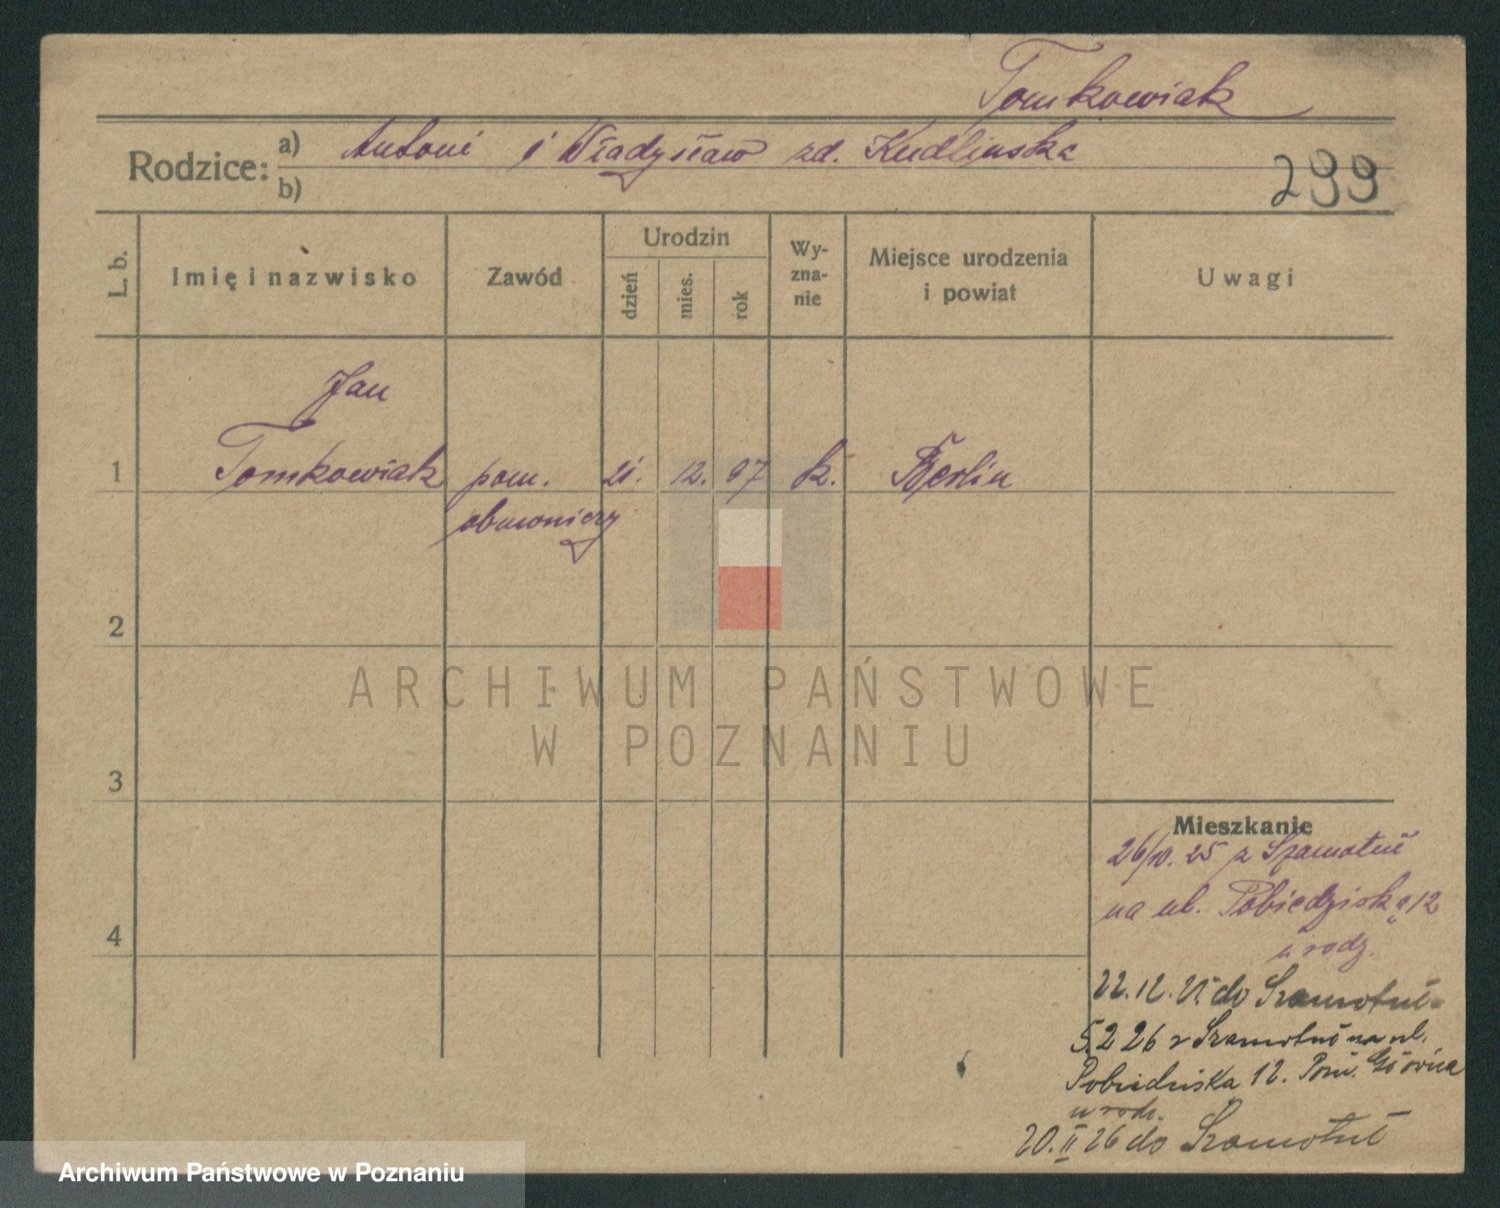 Tomkowiak
Rodzice: a) Antoni i Władysław zd. Kudlinska
b)
299
L. b. Imię i nazwisko Zawód Urodzin dzień mies. rok Wyznanie Miejsce urodzenia i powiat Uwagi
Jan
1 Tomkowiak pom. 21. 12. 97 k. Berlin
obuwniczy
2
ARCHIWUM PAŃSTWOWE
W POZNANIU
3
Mieszkanie
26/10. 25 z Szamotuł
na ul. Pobiedziską 12
4
u rodz.
22.12.25 do Szamotuł
5.2 26 z Szamotuł na ul.
Pobiedziska 12. Górna
u rodz.
20.II 26 do Szamotuł
Archiwum Państwowe w Poznaniu